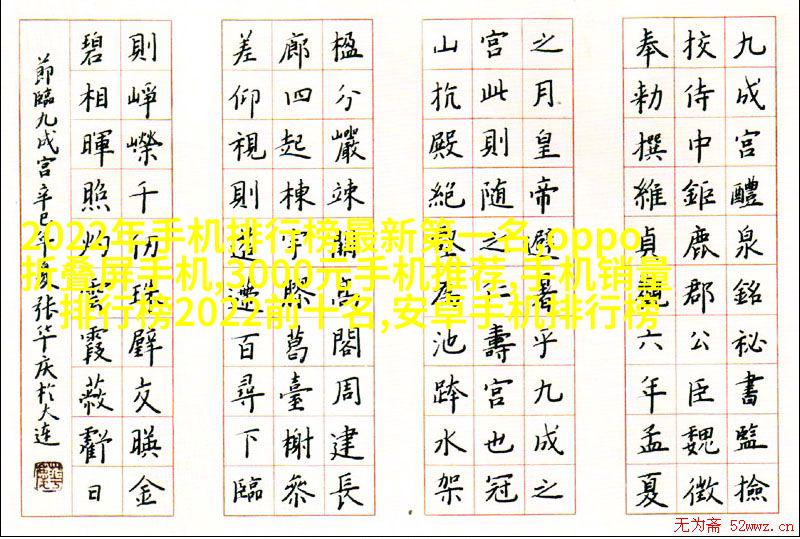 九成宮醴泉銘祕書監撿
挍侍中鉅鹿郡公臣魏徵
奉勅撰維貞觀六年孟夏
之月皇帝避暑乎九成之
宮此則随之仁壽宮也冠
山抗殿絕壑為池跨水架
楹分巖竦闕高閣周建長
廊四起棟宇膠葛臺榭參
差仰視則迢遰百尋下臨
則崢嶸千仞珠璧交暎金
碧相暉照灼雲霞蔽虧日
節臨九成宮辛巳年夏张华庆於大连
2022年手机排行榜最新第一名,oppo
折叠屏手机,3000元手机推荐,手机销量
排行榜2022前十名,安卓手机排行榜
无为斋 52wwz.cn